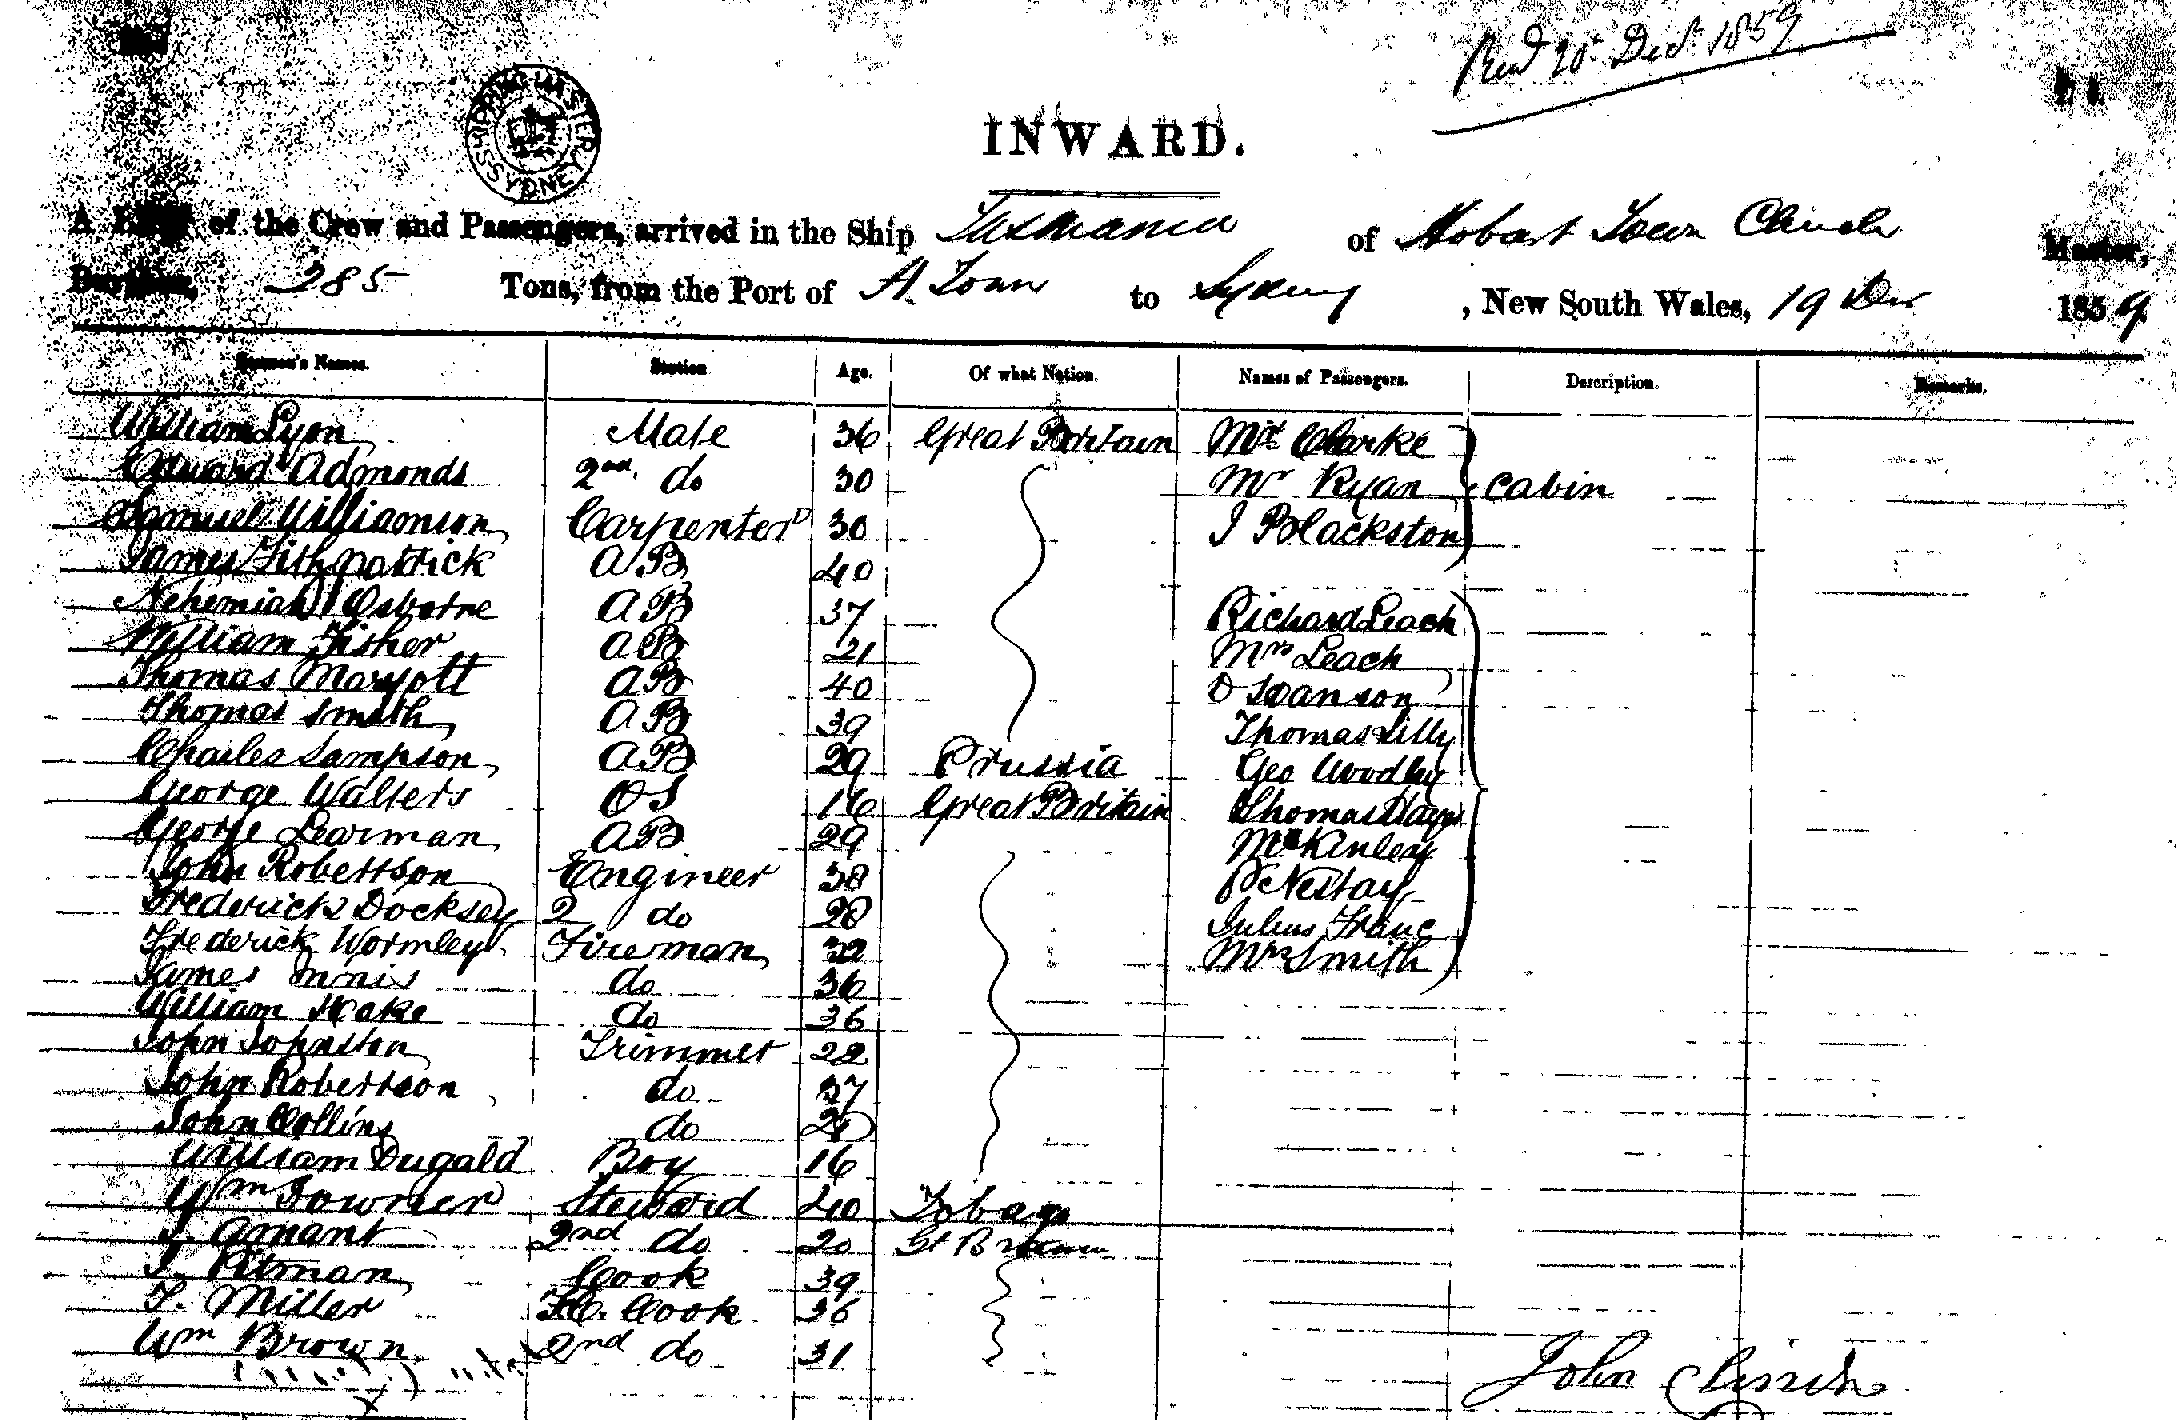 Dec. 1859
SHIPPING MASTER SYDNEY
INWARD.
A of the Crew and Passengers, arrived in the Ship Tasmania of Hobart Town Clinch Master,
Burthen, 285 Tons, from the Port of H. Town to Sydney, New South Wales, 19 Dec 1859
Seamen's Names. Station Age. Of what Nation. Names of Passengers. Description. Remarks.
William Lyon Mate 36 Great Britain Clarke
Edward Admonds 2nd do 30 Mr Ryan Cabin
Samuel Williamson Carpenter 30 J Blackston
James Fithpattrick AB 40
Nehemiah Osborne AB 37 Richard Leach
William Fisher AB 21 Mrs Leach
Thomas Maryott AB 40 D Swanson
Thomas Smith AB 39 Thomas Lilly
Charles Sampson AB 29 Prussia Geo Woodley
George Walters OS 16 Great Britain Thomas Hays
George Learman AB 29 McKinley
John Robertson Engineer 38 P
Frederick Docksey 2 do 28 Julius Franc
Frederick Wormley Fireman 32 Mrs Smith
James Innis do 36
William do 36
John Johnston Trimmer 22
John Robertson do 37
John Collins do
William Dugald Boy 16
Wm Steward 40 Tobago
J. Amant 2nd do 20 Gt Britain
J. Pitman Cook 39
T. Miller Cook 36
Wm Brown 2nd do 31
John Clinch